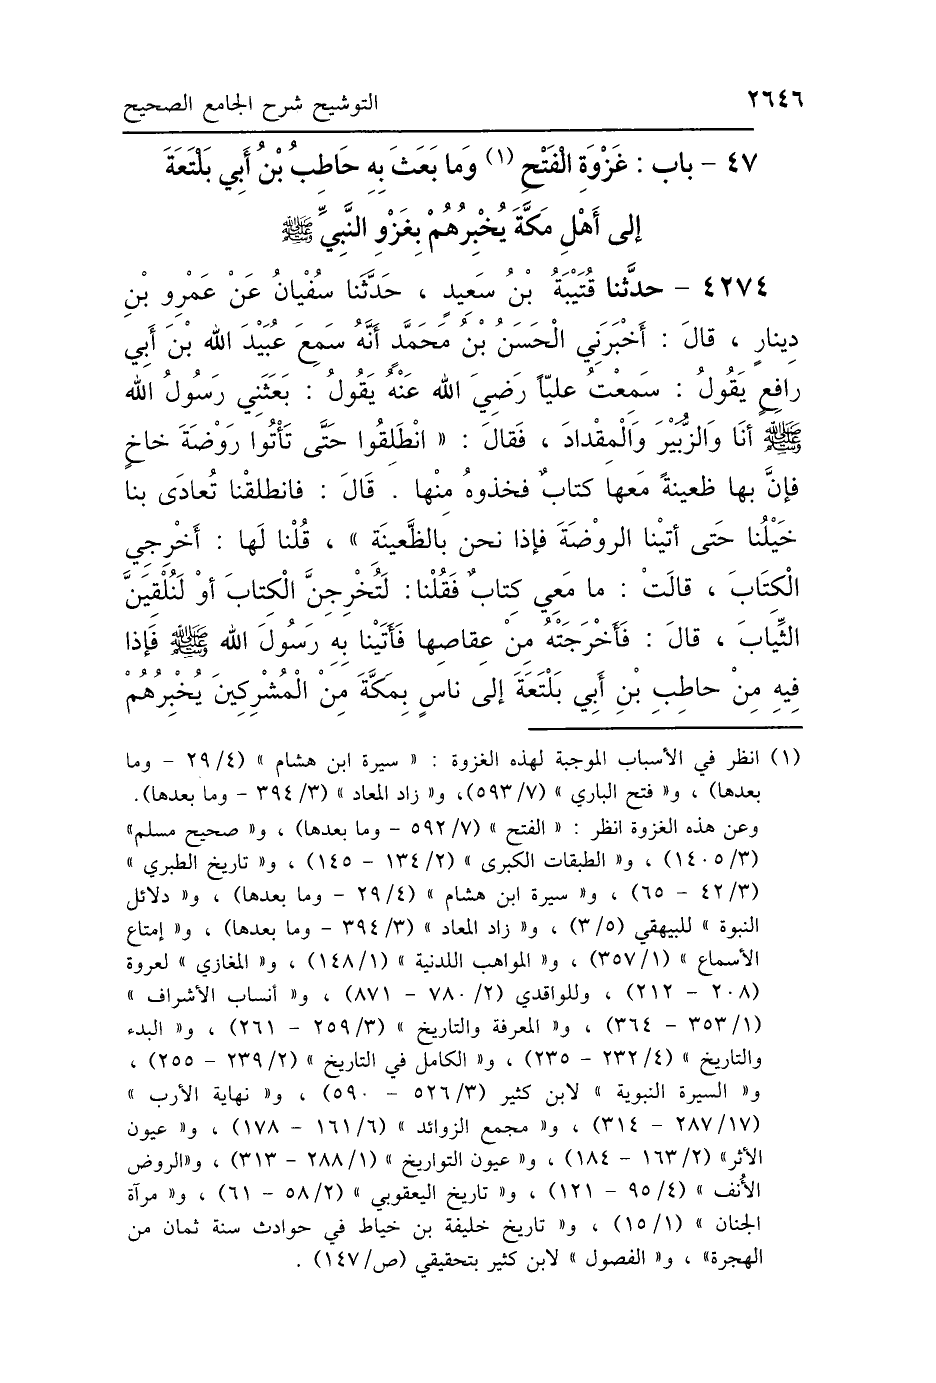 ٢٦٤٦ التوشيح شرح الجامع الصحيح
٤٧ - باب : غَزْوَةِ الْفَتْحِ (١) وَما بَعَثَ بِهِ حَاطِبُ بْنُ أَبِي بَلْتَعَةَ
إلى أَهْلِ مَكَّةَ يُخْبِرُهُمْ بِغَزْوِ النَّبِيِّ ﷺ
٤٢٧٤ - حدثَّنا قُتَيْبَةُ بْنُ سَعِيدٍ ، حَدَّثَنا سُفْيانُ عَنْ عَمْرِو بْنِ
دِينارٍ ، قالَ : أَخْبَرَنِي الْحَسَنُ بْنُ مُحَمَّدٍ أَنَّهُ سَمِعَ عُبَيْدَ الله بْنَ أَبي
رافِعٍ يَقُولُ : سَمِعْتُ عليّاً رَضِيَ الله عَنْهُ يَقُولُ : بَعَثَنِي رَسُولُ الله
ﷺ أنَا وَالزُّبَيْرَ وَالْمِقْدادَ ، فَقالَ : « انْطَلِقُوا حَتَّى تَأْتُوا رَوْضَةَ خاخٍ
فإنَّ بها ظعينةً مَعها كتابٌ فخذوهُ مِنْها . قَالَ : فانطلقْنا تُعادَى بنا
خَيْلُنا حَتى أتيْنا الروْضَةَ فإذا نحن بالظَّعينَةِ » ، قُلْنا لَها : أَخْرِجِي
الْكِتَابَ ، قالَتْ : ما مَعِي كِتابٌ فَقُلْنا: لَتُخْرِجِنَّ الْكِتابَ أوْ لَنُلْقِيَنَّ
الثِّيابَ ، قالَ : فَأَخْرَجَتْهُ مِنْ عقاصِها فَأَتَيْنا بِهِ رَسُولَ الله ﷺ فَإذا
فِيهِ مِنْ حاطِبِ بْنِ أبي بَلْتَعَةَ إلى ناسٍ بِمَكَّةَ مِنَ الْمُشْرِكِينَ يُخْبِرُهُمْ
(١) انظر في الأسباب الموجبة لهذه الغزوة : « سيرة ابن هشام » (٢٩/٤ - وما
بعدها) ، و« فتح الباري » (٥٩٣/٧)، و« زاد المعاد » (٣٩٤/٣ - وما بعدها).
وعن هذه الغزوة انظر : « الفتح » (٥٩٢/٧ - وما بعدها) ، و« صحيح مسلم»
(١٤٠٥/٣) ، و« الطبقات الكبرى » (١٣٤/٢ - ١٤٥) ، و« تاريخ الطبري »
(٤٢/٣ - ٦٥) ، و« سيرة ابن هشام » (٢٩/٤ - وما بعدها) ، و« دلائل
النبوة » للبيهقي (٣/٥) ، و« زاد المعاد » (٣٩٤/٣ - وما بعدها) ، و« إمتاع
الأسماع » (٣٥٧/١) ، و« المواهب اللدنية » (١٤٨/١) ، و« المغازي » لعروة
(٢٠٨ - ٢١٢) ، وللواقدي (٧٨٠/٢ - ٨٧١) ، و« أنساب الأشراف »
(٣٥٣/١ - ٣٦٤) ، و« المعرفة والتاريخ » (٢٥٩/٣ - ٢٦١) ، و« البدء
والتاريخ » (٢٣٢/٤ - ٢٣٥) ، و« الكامل في التاريخ » (٢٣٩/٢ - ٢٥٥) ،
و« السيرة النبوية » لابن كثير (٥٢٦/٣ - ٥٩٠) ، و« نهاية الأرب »
(٢٨٧/١٧ - ٣١٤) ، و« مجمع الزوائد » (١٦١/٦ - ١٧٨) ، و« عيون
الأثر» (١٦٣/٢ - ١٨٤) ، و« عيون التواريخ » (٢٨٨/١ - ٣١٣) ، و«الروض
الأُنف » (٩٥/٤ - ١٢١) ، و« تاريخ اليعقوبي » (٥٨/٢ - ٦١) ، و« مرآة
الجنان » (١٥/١) ، و« تاريخ خليفة بن خياط في حوادث سنة ثمان من
الهجرة» ، و« الفصول » لابن كثير بتحقيقي (ص/١٤٧) .